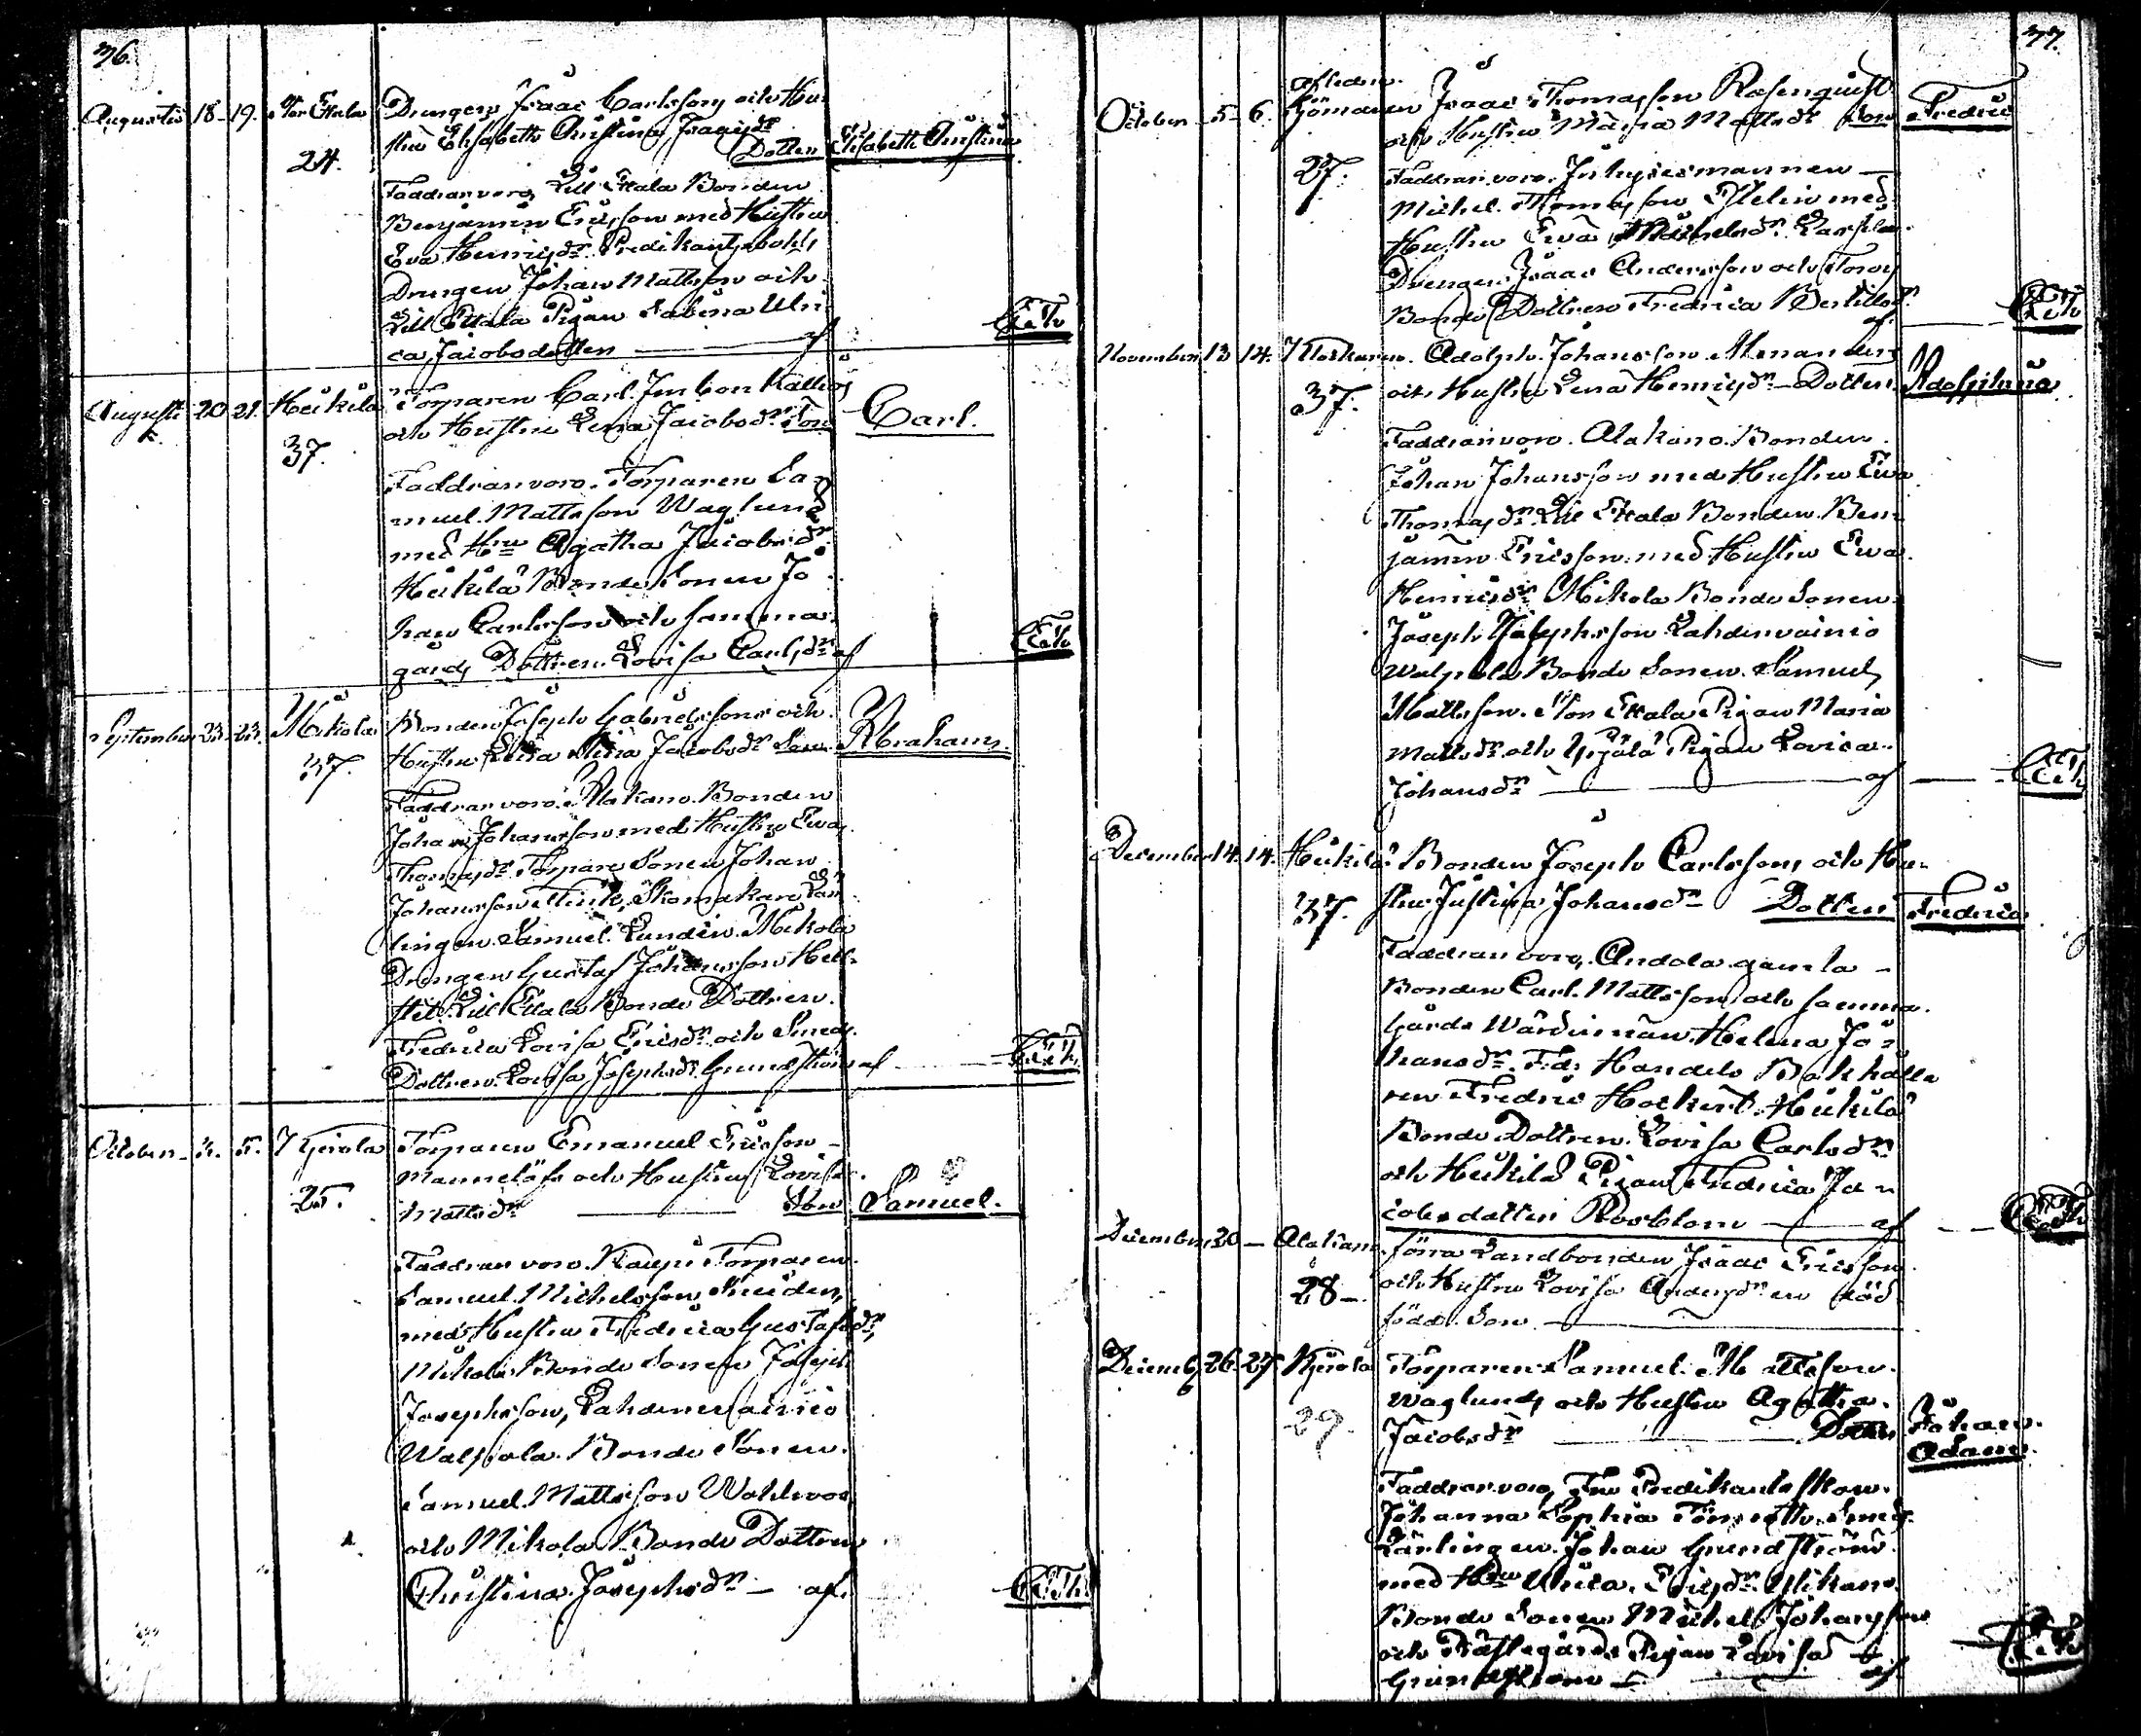 76.
Augusti 18 - 19. Stor Ettala Drengen Isaac Carlsson och Hu-
stru Elisabeth Christina Isacsdr
24. Dotter Elisabeth Christina
Faddrar voro Lill Ettala Bonden
Benjamin Ericsson med Hustru
Eva Henricsdr Predikants
Drengen Johan Mattsson och
Lill Ettala Pigan Sabina Ulri-
ca Jacobsdotter af
Augusti 20 21. Heikilä Torparen Carl Kallio
och Hustru Lena Jacobsdr Son Carl.
37.
Faddrar voro. Torparen Sa-
muel Mattsson Waglund
med Hru Agatha Jacobsdr
Heikilä Bonde Sonen Jo-
han Carlsson och samma
gårds Dottren Lovisa Carlsdr af
September 23 - 23. Mikola Bonden Joseph Gabrielsson och
Hustru Lisa Stina Jacobsdr Son Abraham.
37.
Faddrar voro. Alakano Bonden
Johan Johansson med Hustru Eva
Thomasdr Torpare Sonen Johan
Johansson Flink, Skomakare Lär-
lingen Samuel Lundin. Mikola
Drengen Gustaf Johansson Hell-
sted. Lill Ettala Bonde Dottren
Fredrica Lovisa Ericsdr och Smeds
Dottren Lovisa Josephsdr Grundström af
October - 4. 5. Yijrola Torparen Emanuel Ericsson
Mannelöf och Hustru Lovisa
25. Mattsdr Son Samuel.
Faddrar voro Kauppi Torparen
Samuel Michelsson
med Hustru Fredrica Gustafsdr,
Mikola Bonde Sonen Joseph
Josephsson, Lahdenvainio
Walpola Bonde Sonen
Samuel Mattsson
och Mikola Bonde Dottren
Christina Josephsdr - af.
77.
October 5 - 6. Sjömannen Isaac Thomasson Rosenquist
och Hustru Maria Mattsdr Son Fredric
27. Faddrar voro. Inhysesmannen
Michel Thomasson med
Hustru Eva Michelsdr
Drengen Isaac Andersson och
Bonde Dottren Fredrica Bertilsdr
af
November 13 14. Adolph Johansson Almander
och Hustru Lena Henricsdr - Dotter. Adolphina
37.
Faddrar voro. Alakano Bonden
Johan Johansson med Hustru Eva
Thomasdr Lill Ettala Bonden Ben-
jamin Ericsson med Hustru Eva
Henricsdr Mikola Bonde Sonen
Joseph Josephsson Lahdenvainio
Walpola Bonde Sonen Samuel
Mattsson. Stor Ettala Pigan Maria
Mattsdr och Pigan Lovica
Johansdr af
December 14. 14. Heikilä Bonden Joseph Carlsson och Hu-
stru Justina Johansdr Dotter Fredrica
37.
Faddrar voro, Andola gamla
Bonden Carl Mattsson och samma
Gårds Wärdinnan Helena Jo-
hansdr. F.d. Handels Bokhålla-
ren Fredric Heikilä
Bonde Dottren Lovisa Carlsdr
och Heikilä Pigan Fredrica Ja-
cobsdotter Rosblom af
December 20 - Alakano förra Landbonden Isaac Ericsson
och Hustru Lovisa Andersdr en död-
28 - född Son
Decemb 26 - 27. Kyrola Torparen Samuel Mattsson
Waglund och Hustru Agatha
29. Jacobsdr Son Johan
Adam.
Faddrar voro, Fru Predikantskan
Johanna Sophia Smeds
Lärlingen Johan Grundström
med Hru Ulrica Ericsdr Alikano
Bonde Sonen Michel Johansson
och Prästegårds Pigan Lovisa
Grundström af